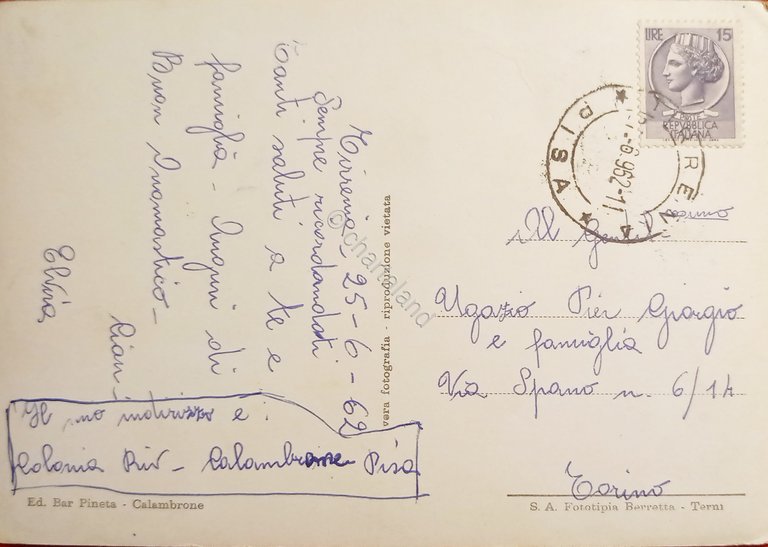 Tirrenia 25-6-62
Sempre ricordandoti
Tanti saluti a te e
famiglia - Auguri di
Buon Onomastico -
Ciao -
Elvira
Il mo indirizzo e:
Colonia Riv - Calambrone Pisa
Ed. Bar Pineta - Calambrone
vera fotografia - riproduzione vietata
© chartaland
LIRE 15
REPVBBLICA
ITALIANA
TIRRENIA
* PISA *
-6.962-11
Al Gentilissimo
Ugazio Pier Giorgio
e famiglia
Via Spano n. 6/14
Torino
S. A. Fototipia Berretta - Terni